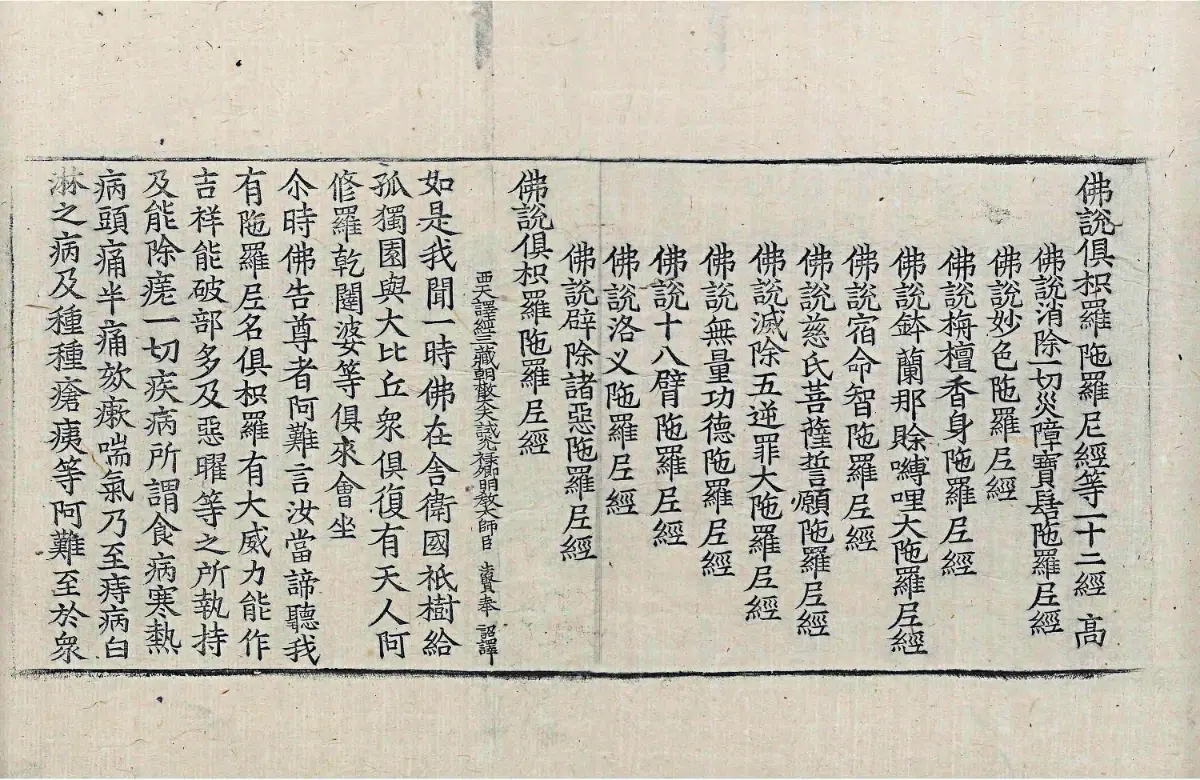 佛說俱枳羅陁羅尼經等一十二經 高
佛說消除一切災障寶髻陁羅𡰱經
佛說妙色陁羅𡰱經
佛說栴檀香身陁羅𡰱經
佛說鉢蘭那賒嚩哩大陁羅𡰱經
佛說宿命智陁羅𡰱經
佛說慈氏菩薩誓願陁羅𡰱經
佛說滅除五逆罪大陁羅𡰱經
佛說無量功德陁羅𡰱經
佛說十八臂陁羅𡰱經
佛說洛叉陁羅𡰱經
佛說辟除諸惡陁羅𡰱經
佛說俱枳羅陁羅𡰱經
西天譯經三藏朝散大夫試光祿卿明教大師臣 法賢奉 詔譯
如是我聞一時佛在舍衛國祇樹給
孤獨園與大比丘衆俱復有天人阿
修羅乾闥婆等俱來會坐
尒時佛告尊者阿難言汝當諦聽我
有陁羅𡰱名俱枳羅有大威力能作
吉祥能破部多及惡曜等之所執持
及能除㾹一切疾病所謂食病寒熱
病頭痛半痛欬嗽喘氣乃至痔病白
淋之病及種種瘡痍等阿難至於衆